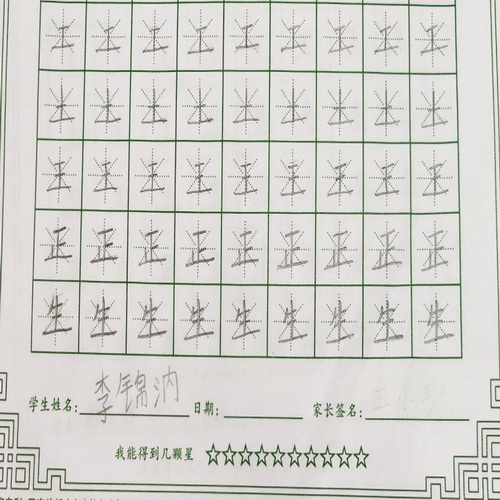 工 工 工 工 工 工 工 工 工
王 王 王 王 王 王 王 王 王
正 正 正 正 正 正 正 正 正
生 生 生 生 生 生 生 生 生
学生姓名: 李锦汭 日期: 家长签名:
我能得到几颗星 ☆☆☆☆☆☆☆☆☆☆